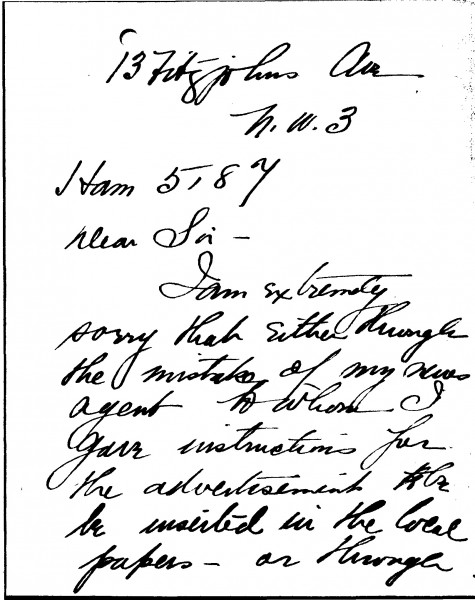 13 Fitzjohns Ave
N.W.3
Ham 5187
Dear Sir -
I am extremely
sorry that either through
the mistake of my news
agent to whom I
gave instructions for
the advertisement to be
be inserted in the local
papers - or through